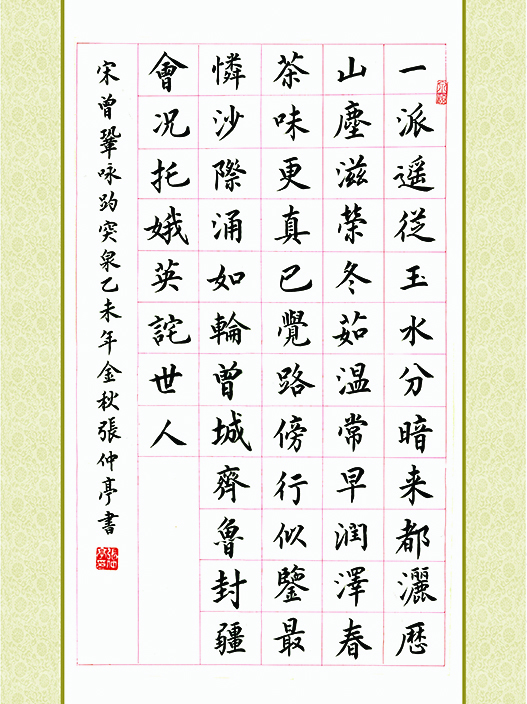 一派遥従玉水分暗来都灑歷
山塵滋榮冬茹温常早潤澤春
茶味更真已覺路傍行似鑒最
憐沙際涌如輪曾城齊魯封疆
會况托娥英詫世人
宋曾鞏咏趵突泉乙未年金秋張仲亭書